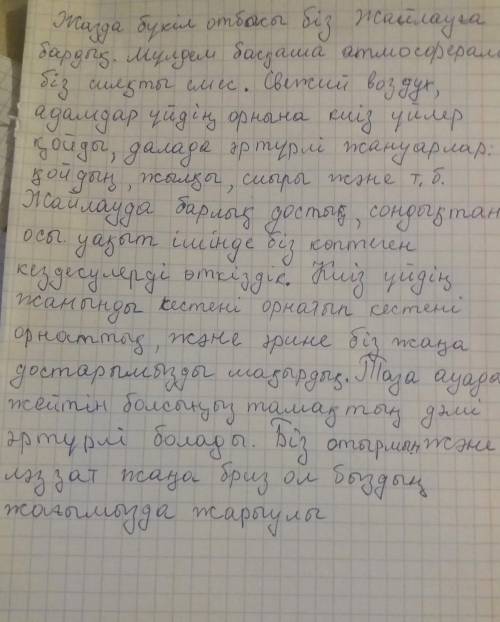 Жазда бүкіл отбасы біз Жайлауға
бардық. Мүлдем басқаша атмосферала
біз сияқты емес. Свежий воздух,
адамдар үйдің орнына киіз үйлер
қойды, далада әртүрлі жануарлар:
қойдың, жылқы, сиыры және т.б.
Жайлауда барлық достық, сондықтан
осы уақыт ішінде біз көптеген
кездесулерді өткіздік. Киіз үйдің
жанынды кестені орнатып кестені
орнаттық, және әрине біз жаңа
достарымызды шақырдық. Таза ауада
жейтін болсыңыз тамақтың дәмі
әртүрлі болады. Біз және
ләззат жаңа бриз ол быздың
жағымызда